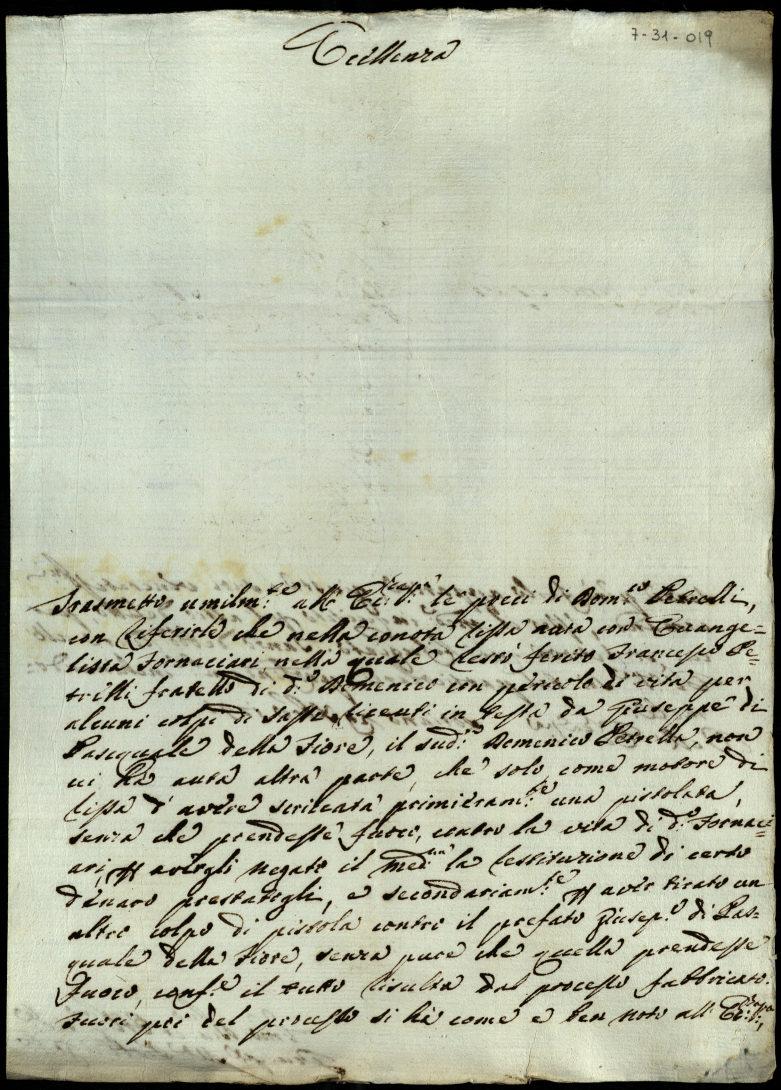 7-31-019
Eccellenza
Trasmetto umilm.te all' Ecc. V.ra le preci di Dom.co Petrelli,
con riferirle che nella conota rissa auta con Evange-
lista Fornaciari nella quale restò ferito Francesco Pe-
trilli fratello di d.o Domenico con pericolo di vita per
alcuni colpi di sasso ricevuti in testa da Giuseppe di
Pasquale della Fiore, il sud.o Domenico Petrella, non
vi ha auta altra parte, che solo come motore di
rissa d' avere scricata primieram.te una pistolata,
senza che prendesse fuoco, contro la vita di d.o Fornaci-
ari, p avergli negato il med.mo la restituzione di certo
denaro prestatogli, e secondariam.te p aver tirato un
altro colpo di pistola contro il prefato Giusep.e di Pas-
quale della Fiore, senza pure che quella prendesse
fuoco, conf.e il tutto risulta dal processo fabbricato.
Fuori poi del processo si ha come è ben noto all' Ecc. V.ra,